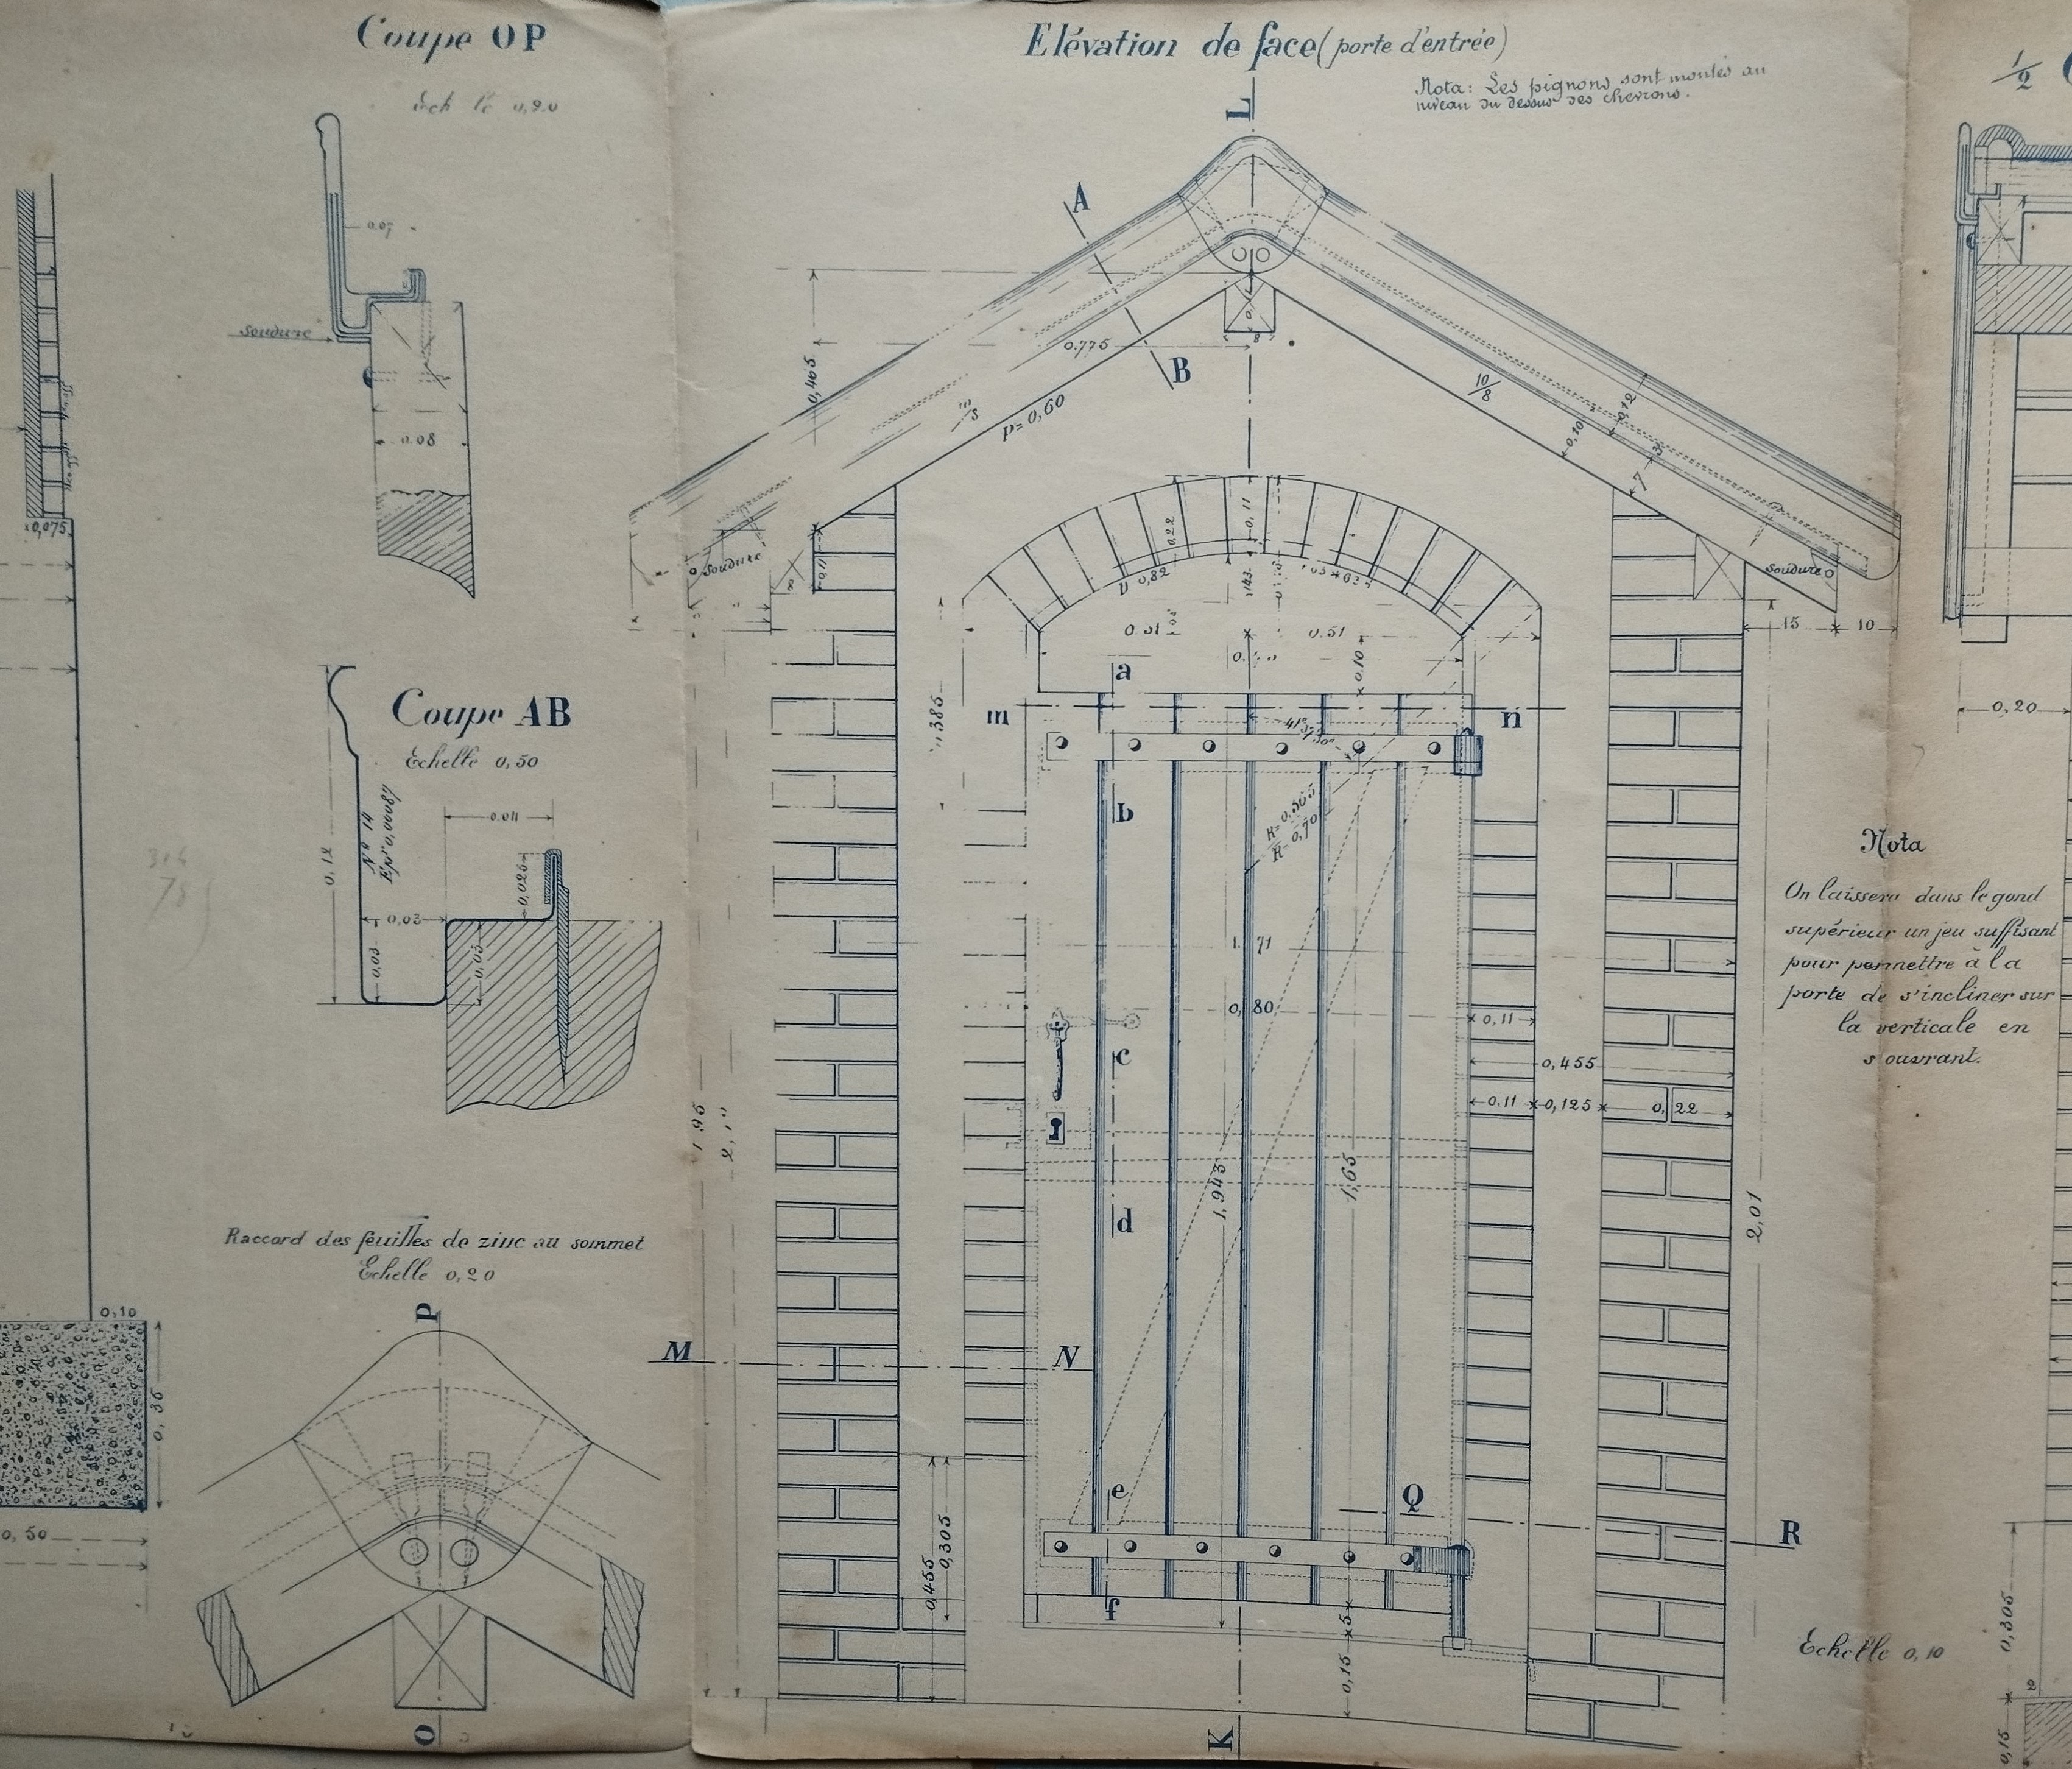 Coupe OP
0,20
0.07
soudure
0.08
0,075
Coupe AB
Echelle 0,50
0.04
Nº 14
Epr 0,00087
0,12
0,025
0,03
0,03
0,03
Raccord des feuilles de zinc au sommet
Echelle 0,20
P
O
0,10
0,35
0,50
Elévation de face (porte d'entrée)
Nota: Les pignons sont montés au
niveau du dessus des chevrons.
L
A
B
0.775
0,465
p=0,60
8
10/8
0,12
0,10
7
3
soudure
0,11
8
soudure
15
10
0,22
0,11
0,82
0.51
0.51
0.10
a
m
n
b
R=0,565
R=0,70
1.71
0,80
0,11
c
0,455
0.11
0,125
0,22
d
1,943
1,65
2,01
1.95
M
N
e
Q
R
0,455
0,305
f
5
0,15
K
Nota
On laissera dans le gond
supérieur un jeu suffisant
pour permettre à la
porte de s'incliner sur
la verticale en
s'ouvrant.
Echelle 0,10
1/2
0,20
0,305
0,15